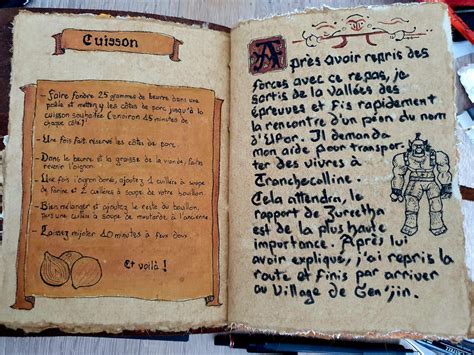 Cuisson
- Faire fondre 25 grammes de beurre dans une
poêle et mettez y les côtes de porc jusqu'à
cuisson souhaitée (environ 15 minutes de
chaque côté)
- Une fois fait réservé les côtes de porc.
- Dans le beurre et la graisse de la viande, faites
revenir l'oignon.
- Une fois l'oignon doré, ajoutez 1 cuillère à soupe
de farine et 2 cuillères à soupe de votre bouillon.
- Bien mélanger et ajoutez le reste du bouillon,
puis une cuillère à soupe de moutarde à l'ancienne
- Laissez mijoter 10 minutes à feux doux.
Et voilà !
Après avoir repris des
forces avec ce repas, je
sortis de la Vallées des
épreuves et fis rapidement
la rencontre d'un péon du nom
d'UPor. Il demanda
mon aide pour transpor-
ter des vivres à
Tranchecolline.
Cela attendra, le
rapport de Zureetha
est de la plus haute
importance. Après lui
avoir expliqué, j'ai repris la
route et finis par arriver
au Village de Sen'jin.